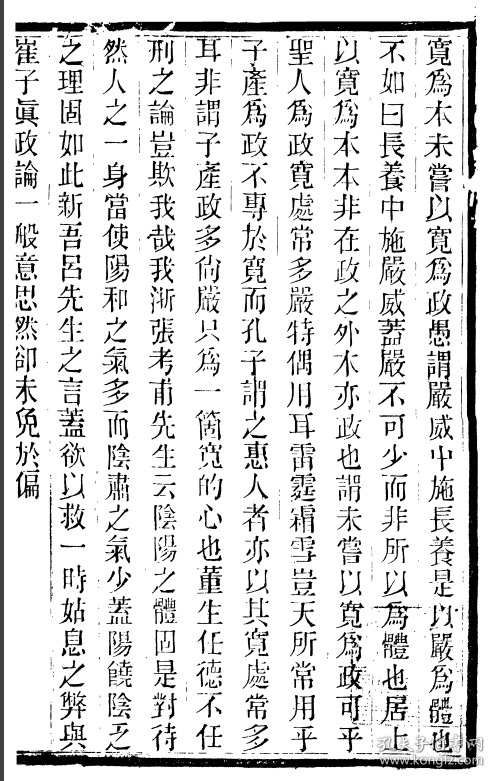 寬爲本未嘗以寬爲政愚謂嚴威中施長養是以嚴爲體也
不如曰長養中施嚴威蓋嚴不可少而非所以爲體也居上
以寬爲本本非在政之外木亦政也謂未嘗以寬爲政可乎
聖人爲政寬處常多嚴特偶用耳雷霆霜雪豈天所常用乎
子產爲政不專於寬而孔子謂之惠人者亦以其寬處常多
耳非謂子產政多尙嚴只爲一箇寬的心也董生任德不任
刑之論豈欺我哉我漸張考甫先生云陰陽之體固是對待
然人之一身當使陽和之氣多而陰肅之氣少蓋陽饒陰乏
之理固如此新吾呂先生之言蓋欲以救一時姑息之弊與
崔子眞政論一般意思然卻未免於偏